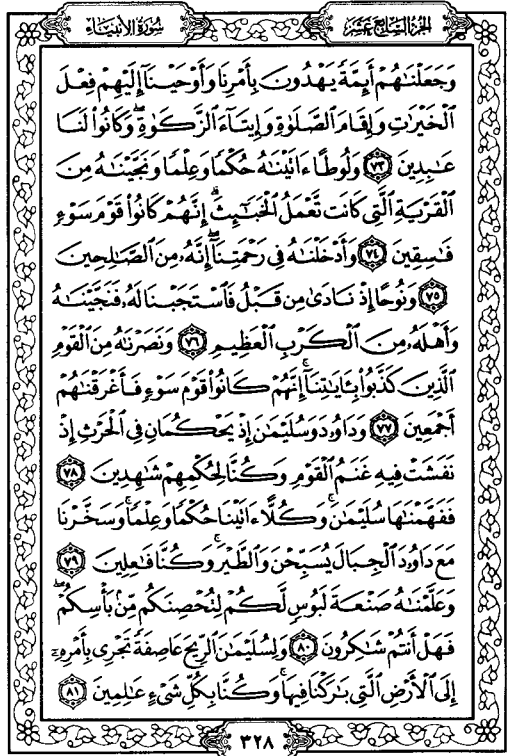 سُورَةُ الأَنبِيَاءِ
الجُزْءُ السَّابِعَ عَشَرَ
وَجَعَلْنَٰهُمْ أَئِمَّةً يَهْدُونَ بِأَمْرِنَا وَأَوْحَيْنَآ إِلَيْهِمْ فِعْلَ
ٱلْخَيْرَٰتِ وَإِقَامَ ٱلصَّلَوٰةِ وَإِيتَآءَ ٱلزَّكَوٰةِ ۖ وَكَانُوا۟ لَنَا
عَٰبِدِينَ ٧٣ وَلُوطًا ءَاتَيْنَٰهُ حُكْمًا وَعِلْمًا وَنَجَّيْنَٰهُ مِنَ
ٱلْقَرْيَةِ ٱلَّتِى كَانَت تَّعْمَلُ ٱلْخَبَٰٓئِثَ ۗ إِنَّهُمْ كَانُوا۟ قَوْمَ سَوْءٍ
فَٰسِقِينَ ٧٤ وَأَدْخَلْنَٰهُ فِى رَحْمَتِنَآ ۖ إِنَّهُۥ مِنَ ٱلصَّٰلِحِينَ
٧٥ وَنُوحًا إِذْ نَادَىٰ مِن قَبْلُ فَٱسْتَجَبْنَا لَهُۥ فَنَجَّيْنَٰهُ
وَأَهْلَهُۥ مِنَ ٱلْكَرْبِ ٱلْعَظِيمِ ٧٦ وَنَصَرْنَٰهُ مِنَ ٱلْقَوْمِ
ٱلَّذِينَ كَذَّبُوا۟ بِـَٔايَٰتِنَآ ۚ إِنَّهُمْ كَانُوا۟ قَوْمَ سَوْءٍ فَأَغْرَقْنَٰهُمْ
أَجْمَعِينَ ٧٧ وَدَاوُۥدَ وَسُلَيْمَٰنَ إِذْ يَحْكُمَانِ فِى ٱلْحَرْثِ إِذْ
نَفَشَتْ فِيهِ غَنَمُ ٱلْقَوْمِ وَكُنَّا لِحُكْمِهِمْ شَٰهِدِينَ ٧٨
فَفَهَّمْنَٰهَا سُلَيْمَٰنَ ۚ وَكُلًّا ءَاتَيْنَا حُكْمًا وَعِلْمًا ۚ وَسَخَّرْنَا
مَعَ دَاوُۥدَ ٱلْجِبَالَ يُسَبِّحْنَ وَٱلطَّيْرَ ۚ وَكُنَّا فَٰعِلِينَ ٧٩
وَعَلَّمْنَٰهُ صَنْعَةَ لَبُوسٍ لَّكُمْ لِتُحْصِنَكُم مِّنۢ بَأْسِكُمْ ۖ
فَهَلْ أَنتُمْ شَٰكِرُونَ ٨٠ وَلِسُلَيْمَٰنَ ٱلرِّيحَ عَاصِفَةً تَجْرِى بِأَمْرِهِۦٓ
إِلَى ٱلْأَرْضِ ٱلَّتِى بَٰرَكْنَا فِيهَا ۚ وَكُنَّا بِكُلِّ شَىْءٍ عَٰلِمِينَ ٨١
٣٢٨